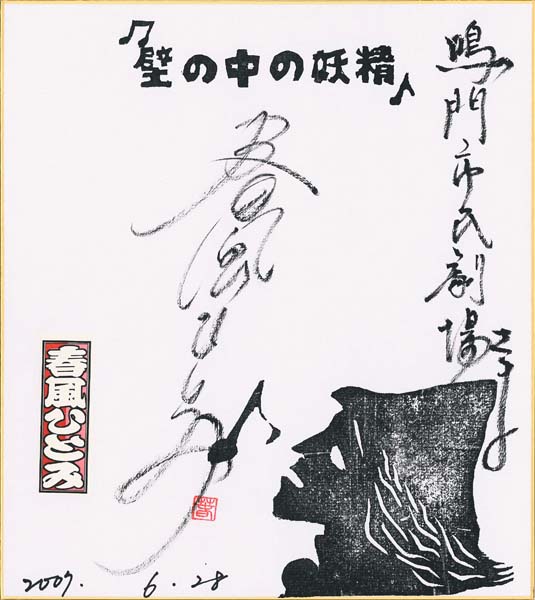 壁の中の妖精
鳴門市民劇場
春風ひとみ
春風ひとみ
2009. 6.28